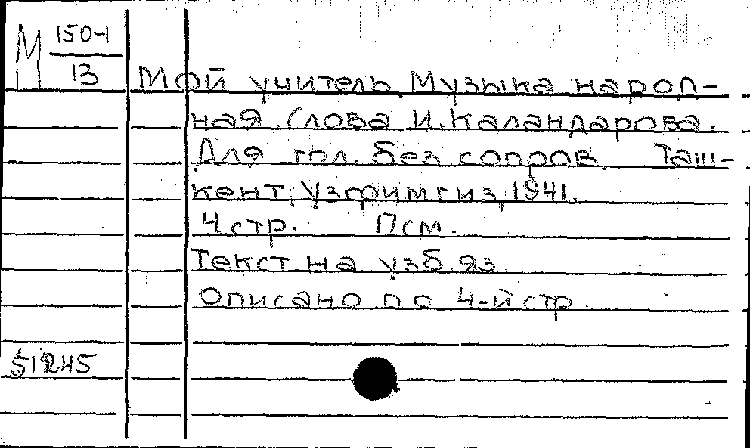 М 150-1
13
Мой учитель. Музыка народ-
ная. Слова И. Каландарова.
Для гол. без сопров. Таш-
кент, Узфимгиз, 1941.
4 стр. 17 см.
Текст на узб. яз.
Описано по 4-й стр.
51245